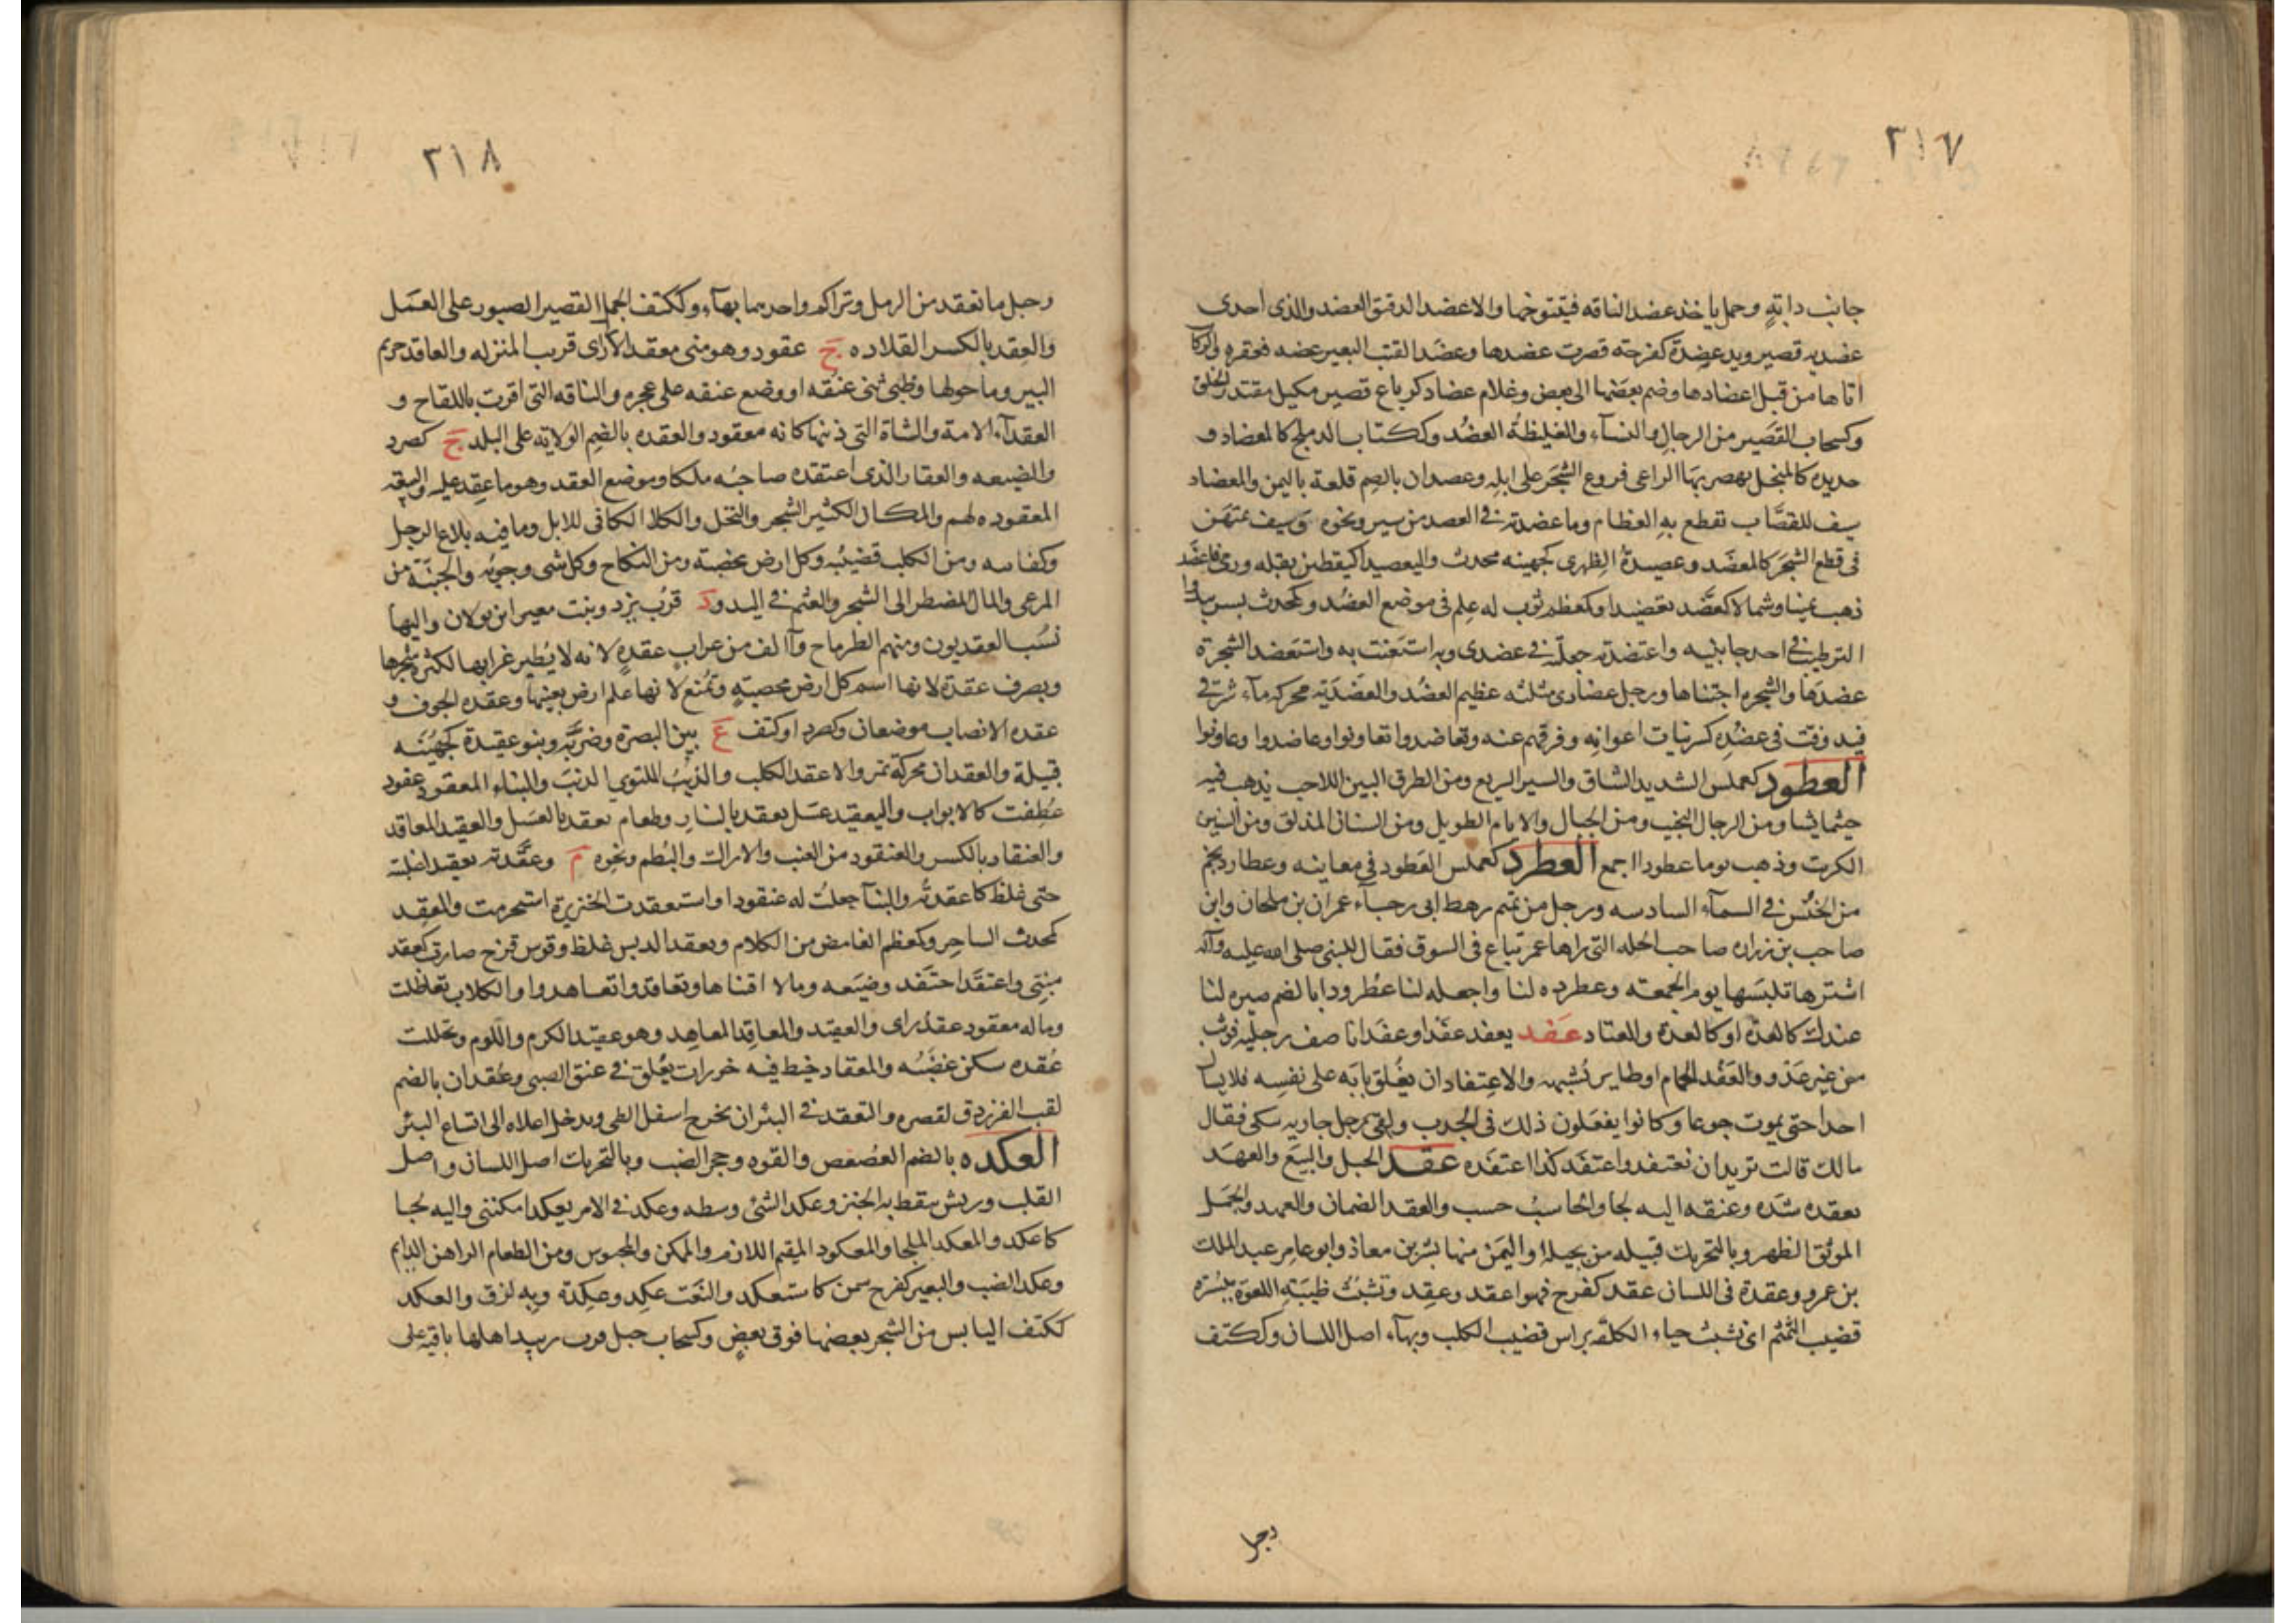 ٣١٧
جانب دابته وحمل ياخذ عضد الناقه فيتنوخها والاعضد الدقيق العضد والذى احدى
عضديه قصير ويد عضدة كفرحة قصرت عضدها وعضد القتب البعير عضه فعقره والركاب
اتاها من قبل اعضادها وضم بعضها الى بعض وغلام عضاد كرباع قصير مكيل مقتدر الخلق
وكسحاب القصير من الرجال والنسآء والغليظة العضد وككتاب الدملج كالمعضاد و
حديده كالمنجل يهصر بها الراعى فروع الشجر على ابله وعصدان بالضم قلعة باليمن والمعضاد
سيف للقصاب تقطع به العظام وما عضدته فى العصد من سير ونحوه وسيف يمتهن
فى قطع الشجر كالمعضد وعصيدة الظهرى كجهينه محدث واليعصيد كيقطين بقله ورمى فاعضد
ذهب يمينا وشمالا كعضد تعضيدا وكمعظم ثوب له علم فى موضع العضد وكمحدث بسر بدا
الترطيب فى احد جانبيه واعتضدته جعلته فى عضدى وبه استعنت به واستعضد الشجرة
عضدها والشجره اجتناها ورجل عضادى مثلثه عظيم العضد والعضدية محركه مآء شرقى
فيد وفت فى عضده كسر نيات اعوانه وفرقهم عنه وتعاضدوا تعاونوا وعاضدوا وعاونوا
العطود كعملس الشديد الشاق والسير السريع ومن الطرق البين اللاحب يذهب فيه
حيثما يشا ومن الرجال النجيب ومن الجبال والايام الطويل ومن السنان المذلق ومن السنين
الكرت وذهب يوما عطودا اجمع العطرد كعملس العطود فى معانيه وعطارد نجم
من الخنس فى السمآء السادسه ورجل من تميم رهط ابى رجآء عمران بن ملحان وابن
صاحب بن زراره صاحب الحله التى راها عمر تباع فى السوق فقال للنبى صلى الله عليه وآله
اشترها تلبسها يوم الجمعته وعطرده لنا واجعله لنا عطرودا بالضم صيره لنا
عندك كالعدة اوكالعدة والعتاد عفد يعفد عفدا وعفدانا صف رجليه فوثب
من غير عدو والعفد الحمام اوطاير يشبهه والاعتفاد ان يغلق بابه على نفسه فلا يسال
احدا حتى يموت جوعا وكانوا يفعلون ذلك فى الجدب ولقى رجل جاريه تبكى فقال
مالك قالت نريد ان نعتفد واعتفد كذا اعتقده عقد الحبل والبيع والعهد
يعقده شده وعنقه اليه لجا والحاسب حسب والعقد الضمان والعهد والجمل
الموثق الظهر وبالتحريك قبيله من بجيله او اليمن منها بشر بن معاذ وابو عامر عبد الملك
بن عمرو وعقدة فى اللسان عقد كفرح فهو اعقد وعقد وتشبث ظبية اللعوة ببسرة
قضيب الثمثم اى تشبث حياء الكلبة براس قضيب الكلب وبهآء اصل اللسان وككتف
رجل
٣١٨
رجل ما تعقد من الرمل وتراكم واحدهما بهآء وككتف الجمل القصير الصبور على العمل
والعقد بالكسر القلاده ج عقود وهو منى معقد الازار اى قريب المنزله والعاقد حريم
البير وما حولها وظبى ثنى عنقه او وضع عنقه على عجزه والناقه التى اقرت باللقاح و
العقدآء الامة والشاة التى ذنبها كانه معقود والعقده بالضم الولاية على البلد ج كصرد
والضيعه والعقار الذى اعتقده صاحبه ملكا وموضع العقد وهو ما عقد عليه والبيعة
المعقوده لهم والمكان الكثير الشجر والنخل والكلا الكافى للابل وما فيه بلاغ الرجل
وكفايته ومن الكلب قضيبه وكل ارض مخصبة ومن النكاح وكل شى وجوبه والجنبة من
المرعى والمال المضطر الى الشجر والعثم فى اليد و د قرب يزد وبنت معبر ابن بولان واليها
نسب العقديون ومنهم الطرماح وآالف من غراب عقده لانه لا يطير غرابها لكثرة شجرها
ويصرف عقدة لانها اسم كل ارض مخصبة وتمنع لانها علم ارض بعينها وعقده الجوف و
عقده الانصاب موضعان وكصرد اوكتف ع بين البصرة وضرية وبنو عقيدة كجهينه
قبيلة والعقدان محركة تمر والاعقد الكلب والذيب الملتوى الذنب والبناء المعقود عقود
عطفت كالابواب واليعقيد عسل يعقد بالنار وطعام يعقد بالعسل والعقيد المعاقد
والعنقاد بالكسر والعنقود من العنب والاراك والبطم ونحوه م وعقدته تعقيدا اغليته
حتى غلظ كاعقدته والبنآ جعلت له عنقودا واستعقدت الخنزيرة استحرمت والعقد
كمحدث الساحر وكمعظم الغامض من الكلام وتعقد الدبس غلظ وقوس قزح صارت كعقد
مبنى واعتقد احتفد وضيعه ومالا اقتناها وتعاقدوا تعاهدوا والكلاب تعاظلت
وماله معقود عقد راى والعقيد والمعاقد المعاهد وهو عقيد الكرم واللوم وتحللت
عقده سكن غضبه والمعقاد خيط فيه خورات يعلق فى عنق الصبى وعقدان بالضم
لقب الفرزدق لقصره والتعقد فى البئر ان يخرج اسفل الطى ويدخل اعلاه الى اتساع البئر
العكده بالضم العصعص والقوه وجحر الضب وبالتحريك اصل اللسان واصل
القلب وريش ينقط به الخبز وعكد الشئ وسطه وعكد فى الامر يعكد امكننى واليه لجا
كاعكد والمعكد الملجا والمعكود المقيم اللازم والممكن والمحبوس ومن الطعام الراهن الدايم
وعكد الضب والبعير كفرح سمن كاستعكد والنعت عكد وعكدة وبه لزق والعكد
ككتف اليابس من الشجر بعضها فوق بعض وكسحاب جبل قرب زبيد اهلها باقيه على